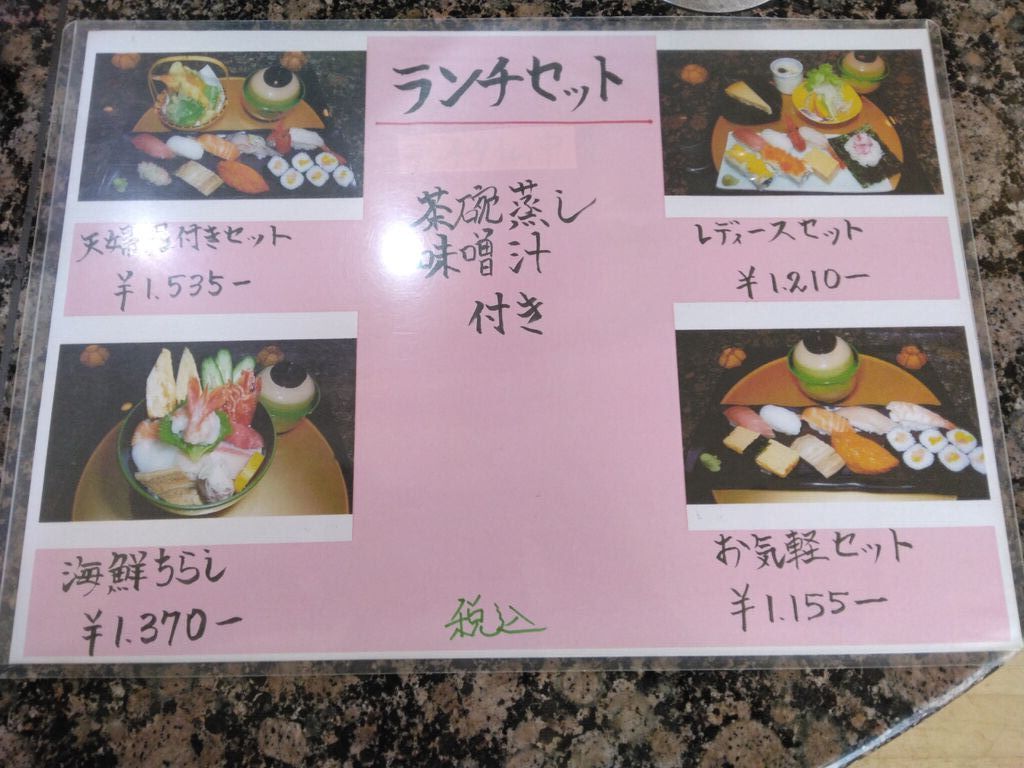 ランチセット
茶碗蒸し
味噌汁
付き
天婦羅付きセット
¥1.535ー
レディースセット
¥1.210ー
海鮮ちらし
¥1.370ー
お気軽セット
¥1.155ー
税込